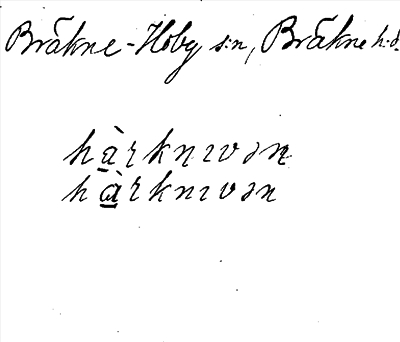 Bräkne-Hoby s:n, Bräkne h.d.
hàrknıvən
hàrknıvən